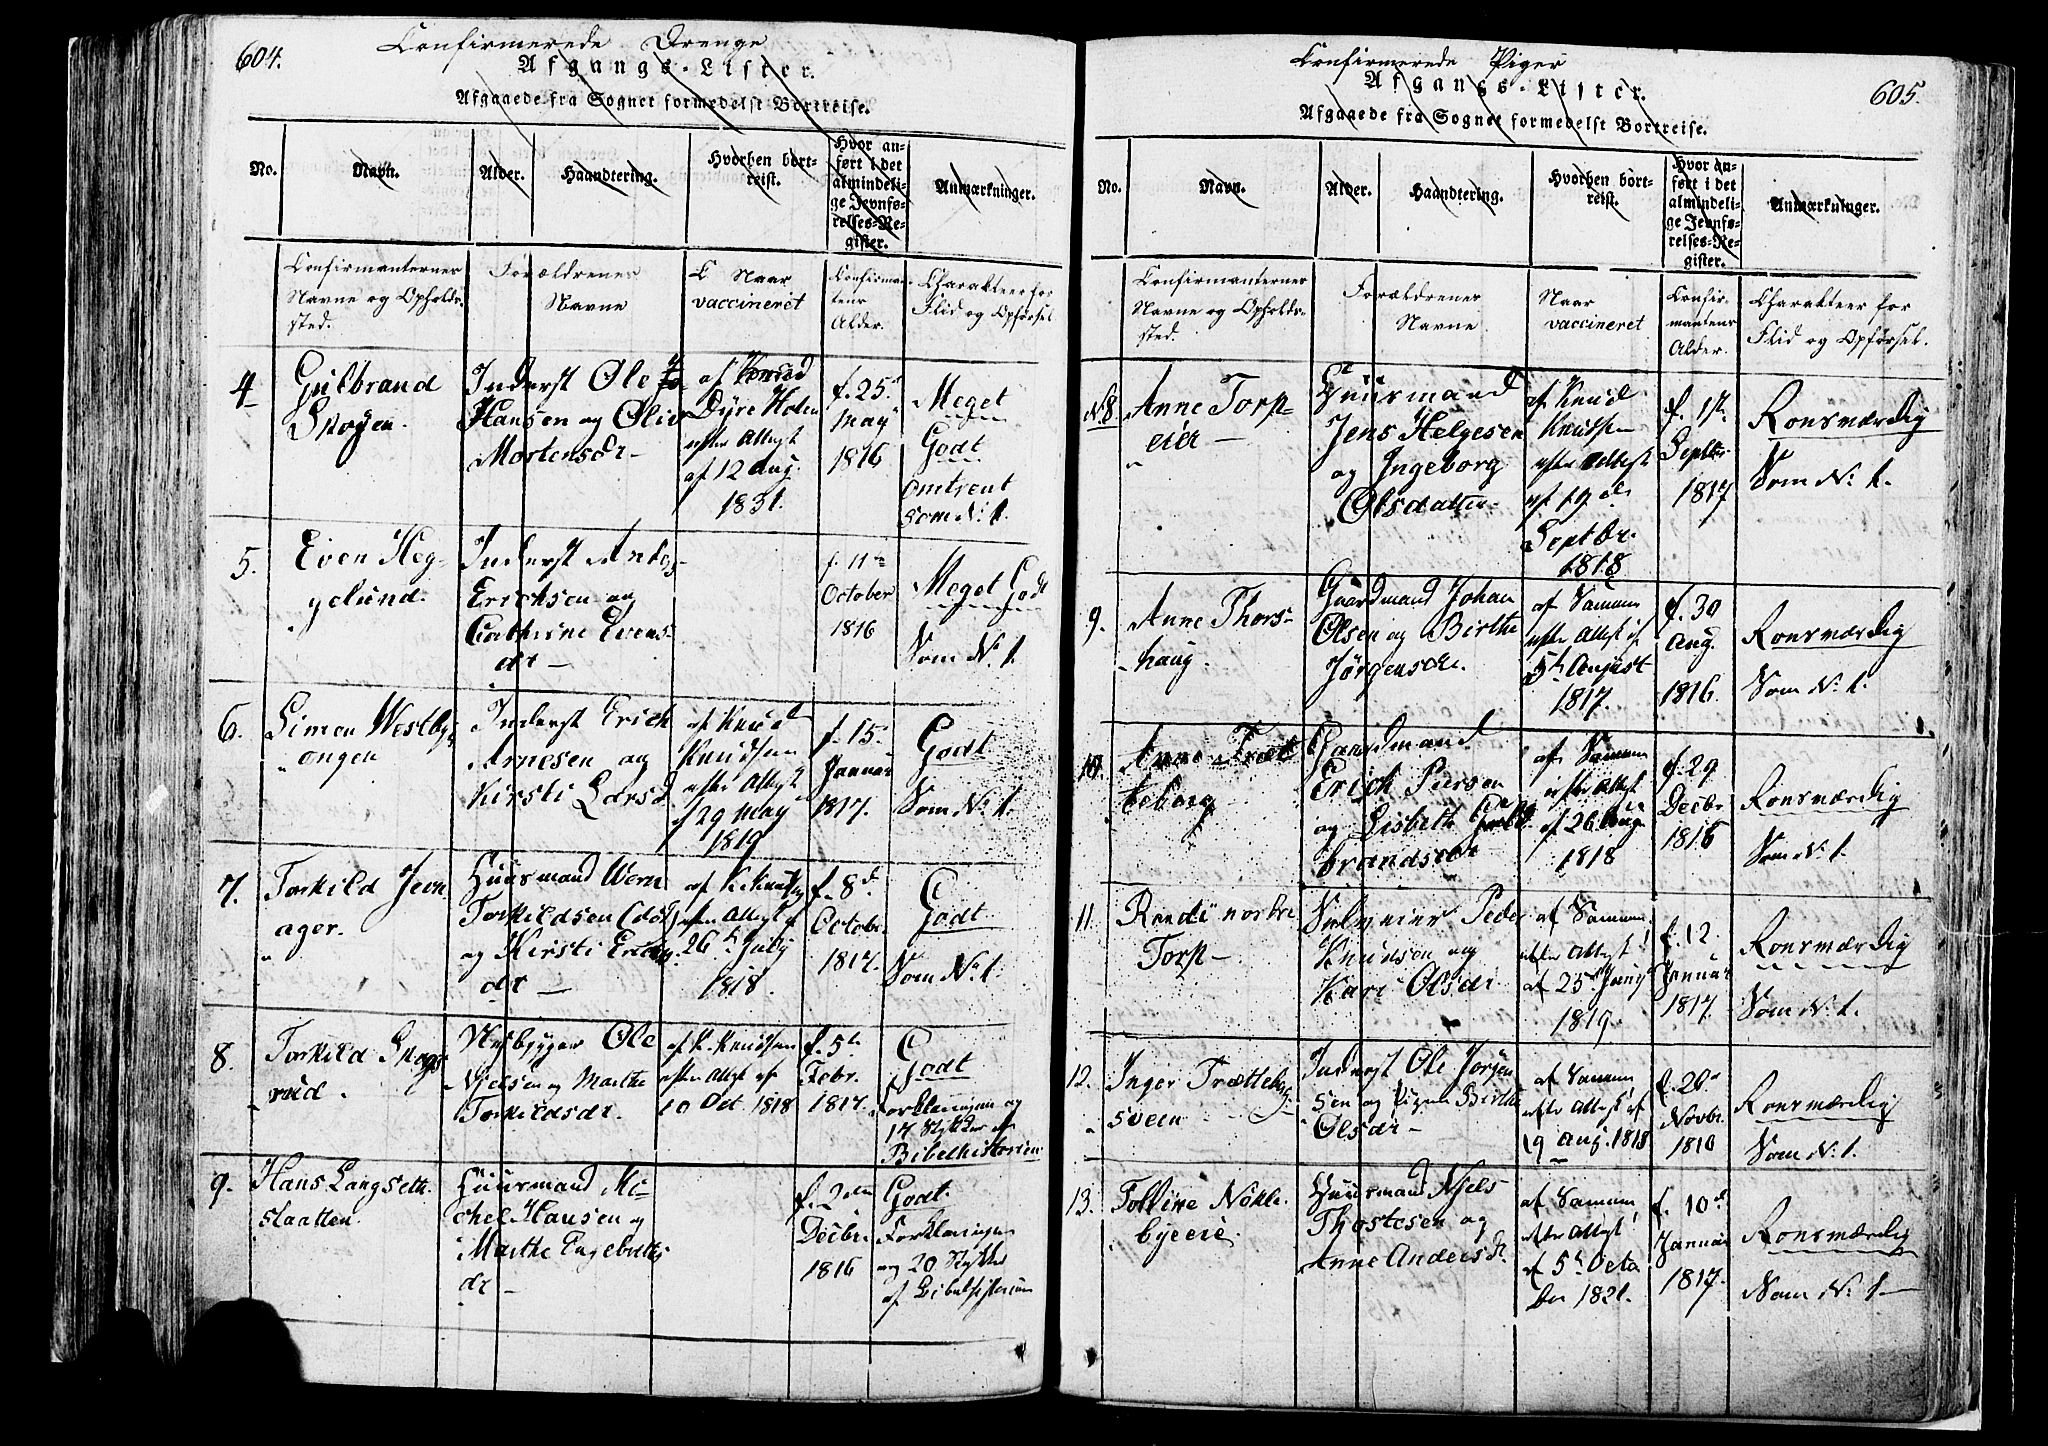 604.
Confirmerede Drenge
Afgangs-Lister.
Afgaaede fra Sognet formedelst Bortreise.
No.
Navn.
Alder.
Haandtering.
Hvorhen bort-
reist.
Hvor an-
ført i det
almindeli-
ge Jevnfø-
relses-Re-
gister.
Anmærkninger.
Confirmanternes
Navne og Opholds-
sted.
Forældrenes
Navne
Naar
vaccineret
Confirman-
tens
Alder.
Charakteer for
Flid og Opførsel
4
Gulbrand
Skoyen.
Inderst Ole
Hansen og Oliv
Mortensdr-
af
Dyre Holen
efter Attest
af 12 aug.
1831.
f. 25
May
1816
Meget
Godt
omtrent
som No. 1.
5.
Even Heg-
gelund.
Inderst Anders
Erichsen og
Cathrine Evens-
dr-
f. 11te
October
1816
Meget Godt
Som No. 1.
6.
Simen Westby-
ongen
Inderst Erich
Arnesen og
Kirsti Larsd
af Knud
Knudsen
efter Attest
f 29 May
1819
f. 15.
Januar
1817.
Godt
Som No. 1.
7.
Torkild Jevn
ager.
Huusmand
Torkildsen
og Kirsti
dr-
af K. Knudsen
efter Attest af
26th July
1818.
f. 8de
Octobr.
1817.
Godt
Som No. 1.
8.
Torkild Skogs
rud.
Nybygger Ole
Nielsen og Marthe
Torkildsdr.
af K. Knudsen
efter Attest af
10 Oct. 1818
f. 5te
Febr.
1817.
Godt
Forklaringen og
17 Stykker af
Bibelhistorien
9.
Hans Langseth-
slaatten.
Huusmand Mi-
chel Hansen og
Marthe Engebrets
dr-
f. 2den
Decbr.
1816
Godt.
Forklaringen
og 20 Stykker
af Bibelhistorien
Confirmerede Piger
605.
Afgangs-Lister.
Afgaaede fra Sognet formedelst Bortreise.
No.
Navn.
Alder.
Haandtering.
Hvorhen bort-
reist.
Hvor an-
ført i det
almindeli-
ge Jevnfø-
relses-Re-
gister.
Anmærkninger.
Confirmanternes
Navne og Opholds-
sted.
Forældrenes
Navne
Naar
vaccineret
Confir-
mantens
Alder.
Charakteer for
Flid og Opførsel.
No 8.
Anne Torp-
eier-
Huusmand
Jens Helgesen
og Ingeborg
Olsdatter-
af Knud
Knutsen
efter Attest
af 19de
Septbr.
1818
f. 1ste
Septbr
1817
Roosværdig
Som No. 1.
9.
Anne Thors-
haug.
Gaardmand Johan
Olsen og Birthe
Jørgensdr.
af Samme
efter Attest af
5te August
1817.
f. 30
Aug.
1816.
Roosværdig
Som No. 1.
10.
Anne Træt
teborg
Gaardmand
Erich Peersen
og Lisbeth Gul
brandsdr
af Samme
efter Attest
af 26 Aug
1818
f. 29
Decbr
1816
Roosværdig
Som No. 1.
11.
Randi nordre
Torp-
Selveier Peder
Knudsen og
Kari Olsdr
af Samme
efter Attest
af 25de Juny
1819.
f. 12.
Januar
1817.
Roosværdig
Som No. 1.
12.
Inger Trætteborg
sveen
Inderst Ole Jørgen
sen og Pigen Birthe
Olsdr-
af Samme
efter Attest af
19 aug. 1818
f. 20
Novbr.
1810
Roosværdig
Som No. 1.
13.
Tolline Nökle-
byeeie
Huusmand Njels
Thostesen og
Anne Andersdr.
af Samme
efter Attest
af 5te Octo
ber 1821.
f. 10de
Januar
1817.
Roosværdig
Som No. 1-